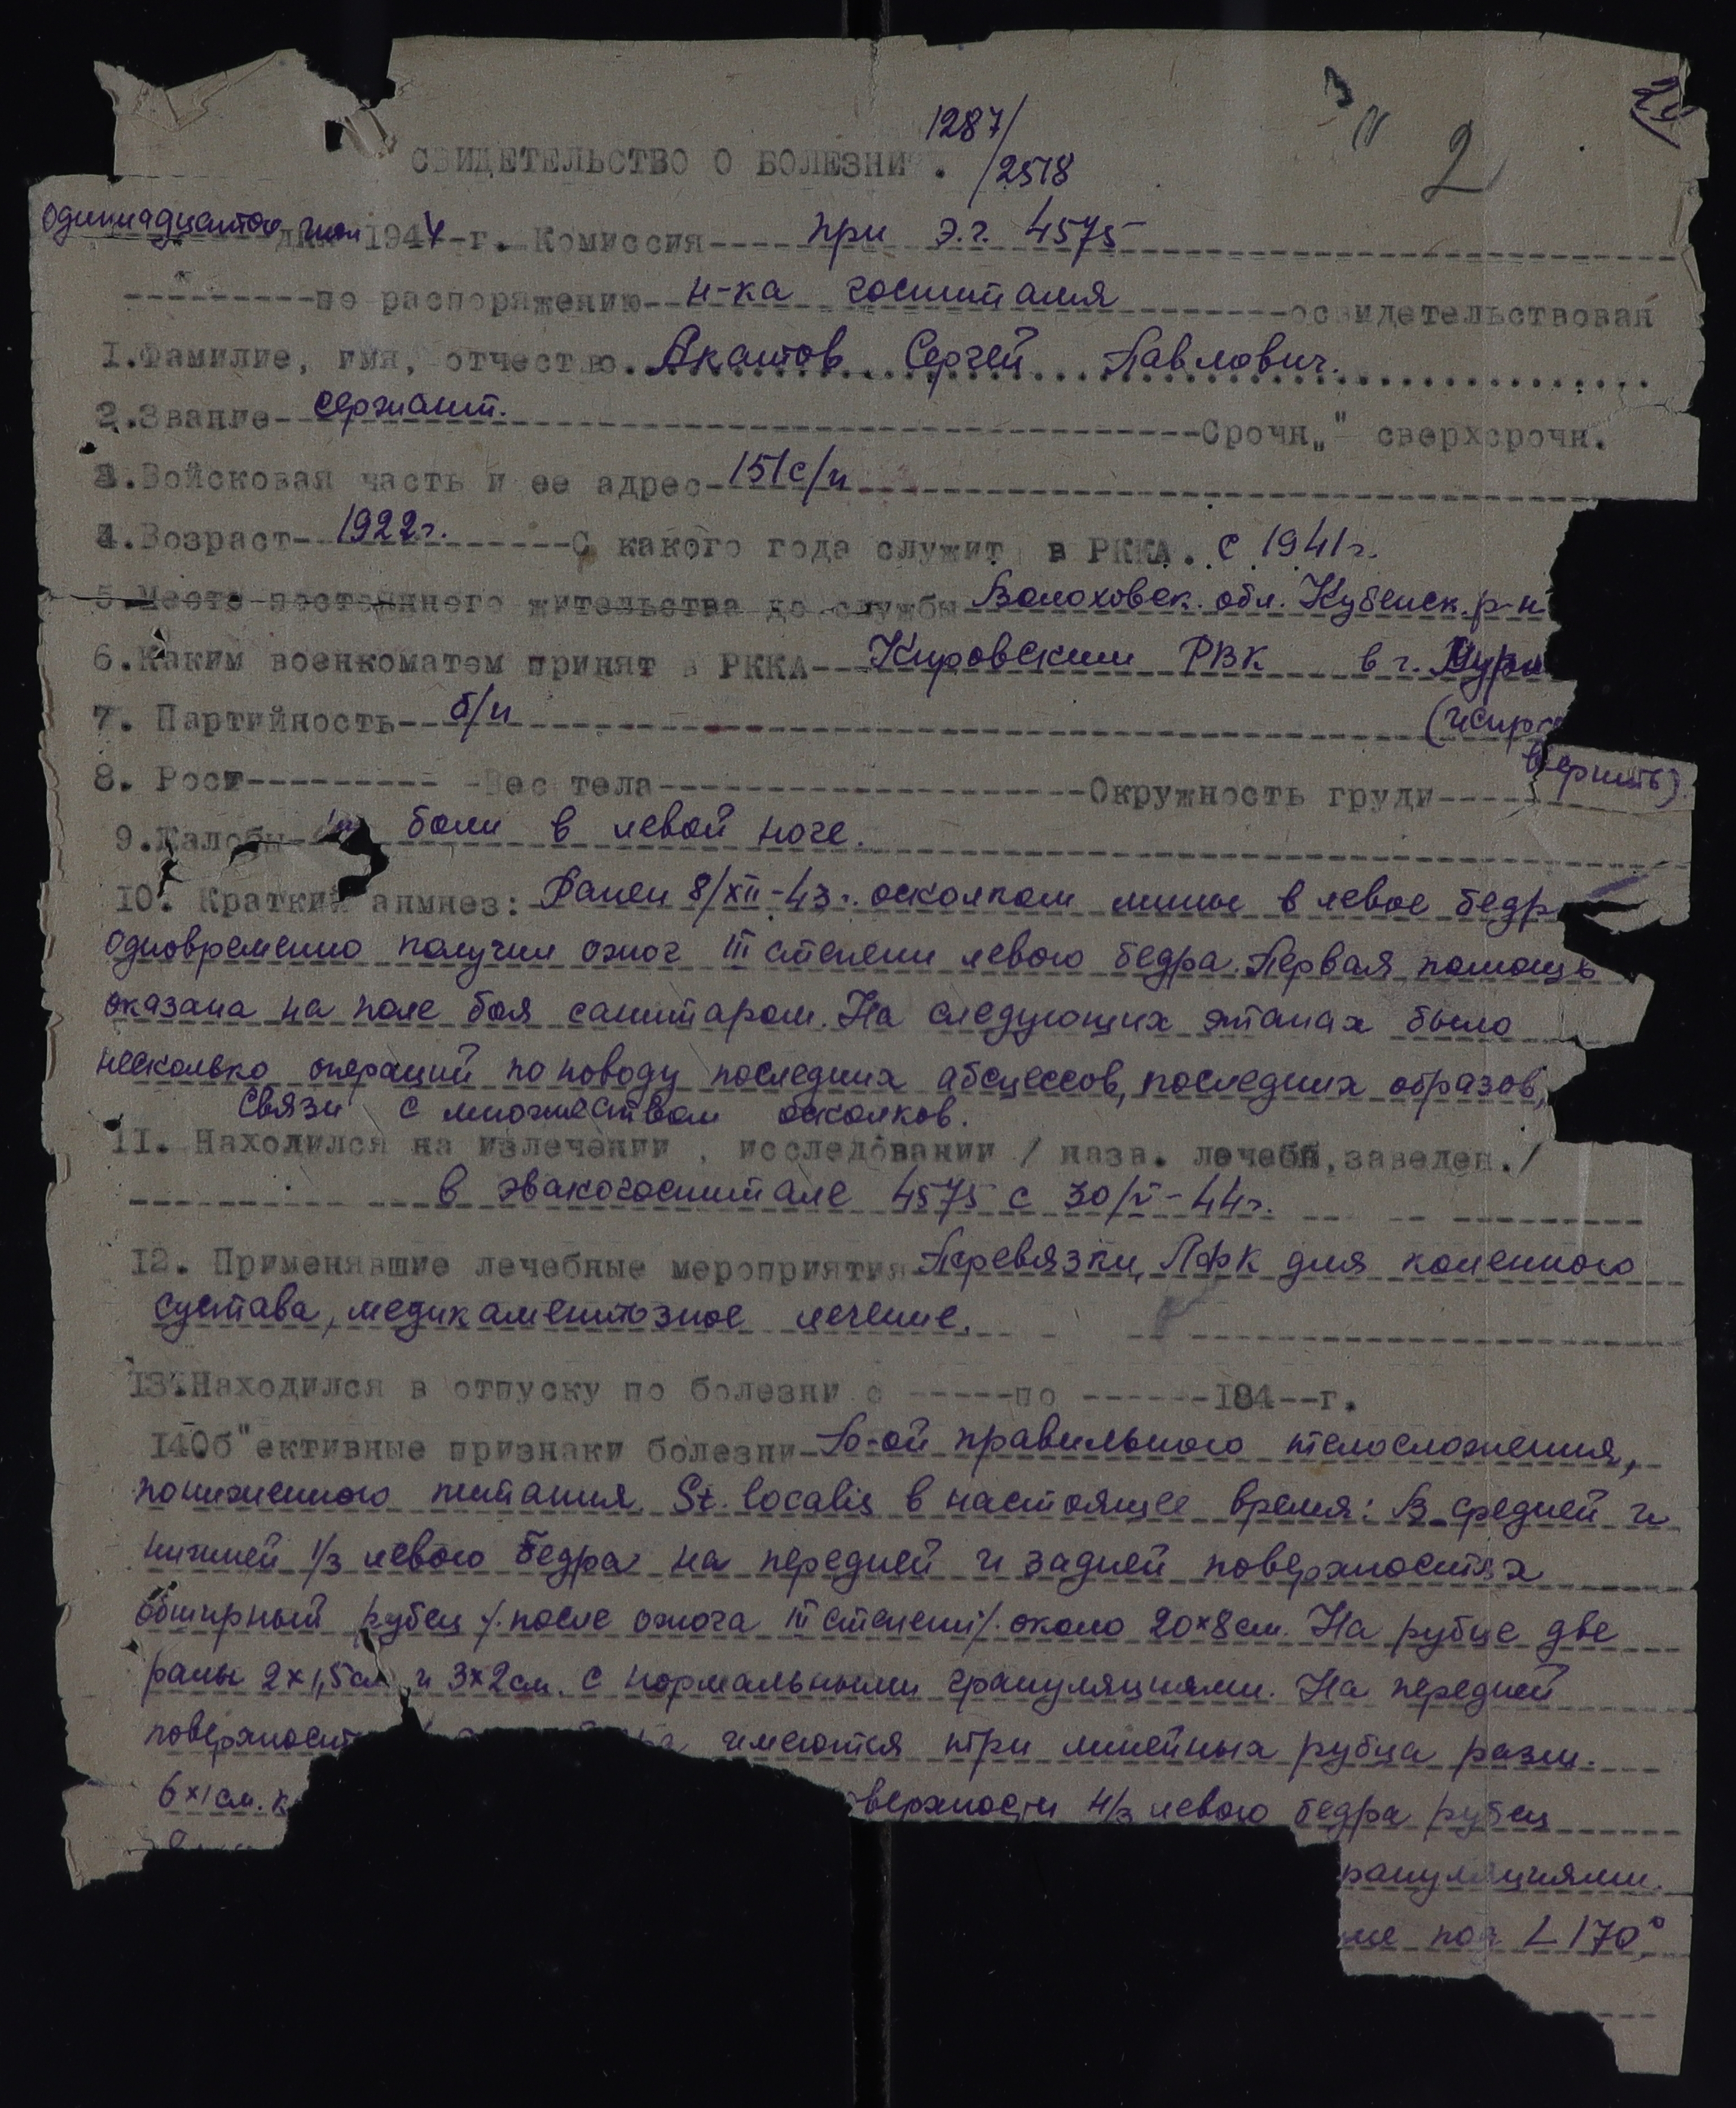 1287/
/2518
2
СВИДЕТЕЛЬСТВО О БОЛЕЗНИ".
Одиннадцатого дня июл 1944-г. Комиссия при э.г. 4575
по распоряжению н-ка госпиталя освидетельствован
1.Фамилие, имя, отчество. Акатов Сергей Павлович.
2.Звание сержант. Срочн„" сверхсрочн.
3.Войсковая часть и ее адрес 151 с/п
4.Возраст 1922г. С какого года служит в РККА. с 1941г.
5.Место постоянного жительства до службы Волоховск. обл. Кубенск. р-н
6.Каким военкоматом принят в РККА Кировским РВК в г. Мурм
7. Партийность б/п (испр
верить)
8. Рост Вес тела Окружность груди
9.Жалобы на боли в левой ноге.
10. Краткий анмнез: Ранен 8/XII-43г. осколком мины в левое бедр
одновременно получил ожог III степени левого бедра. Первая помощь
оказана на поле боя санитаром. На следующих этапах было
несколько операций по поводу последних абсцессов, последних образов,
связи с множеством осколков.
11. Находился на излечении , исследовании / назв. лечебн, заведен./
в эвакогоспитале 4575 с 30/V-44г.
12. Применявшие лечебные мероприятия Перевязки, ЛФК для коленного
сустава, медикаментозное лечение.
13.Находился в отпуску по болезни с по 194 г.
14Об"ективные признаки болезни Б-ой правильного телосложения,
пониженного питания. St. localis в настоящее время: В средней и
нижней 1/3 левого бедра на передней и задней поверхностях
обширный рубец /.после ожога III степени/. около 20×8см. На рубце две
раны 2×1,5см и 3×2см. с нормальными грануляциями. На передней
поверхност имеются три линейных рубца разм.
6×1см. к верхности н/з левого бедра рубец
рануляциями.
ие под L 170°